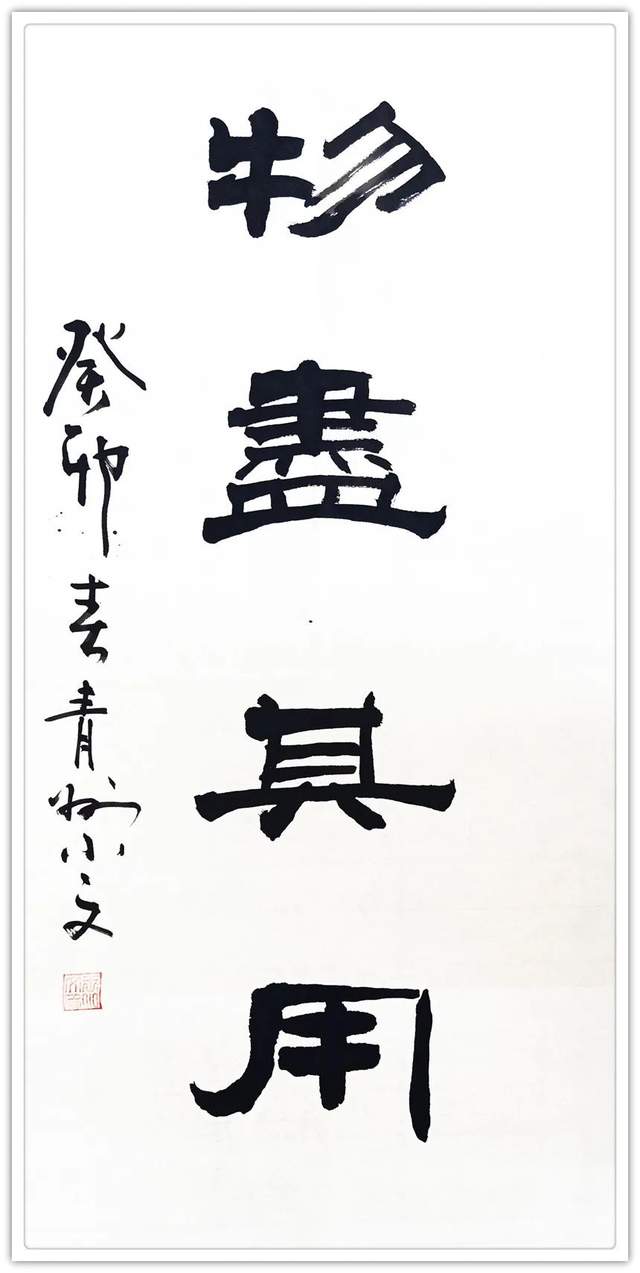 物盡其用
癸卯春青州小文